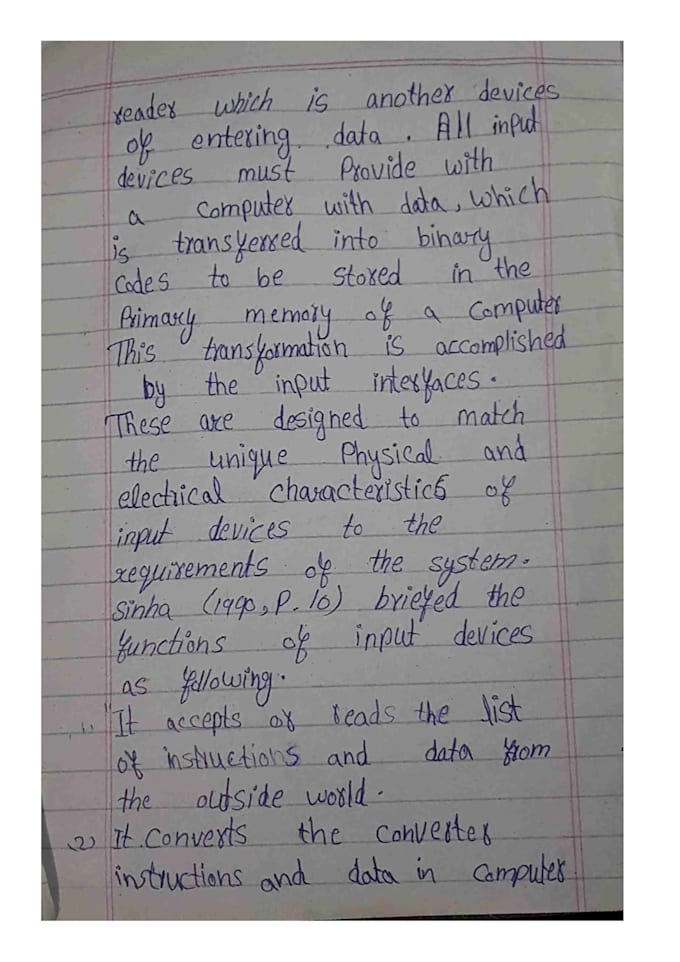 reader which is another devices
of entering data. All input
devices must Provide with
a Computer with data, which
is transferred into binary
Codes to be stored in the
Primary memory of a Computer
This transformation is accomplished
by the input interfaces.
These are designed to match
the unique Physical and
electrical characteristics of
input devices to the
requirements of the system.
Sinha (1990, P. 10) briefed the
functions of input devices
as following.
1. "It accepts or reads the list
of instructions and data from
the outside world.
(2) It Converts the Converter
instructions and data in Computer